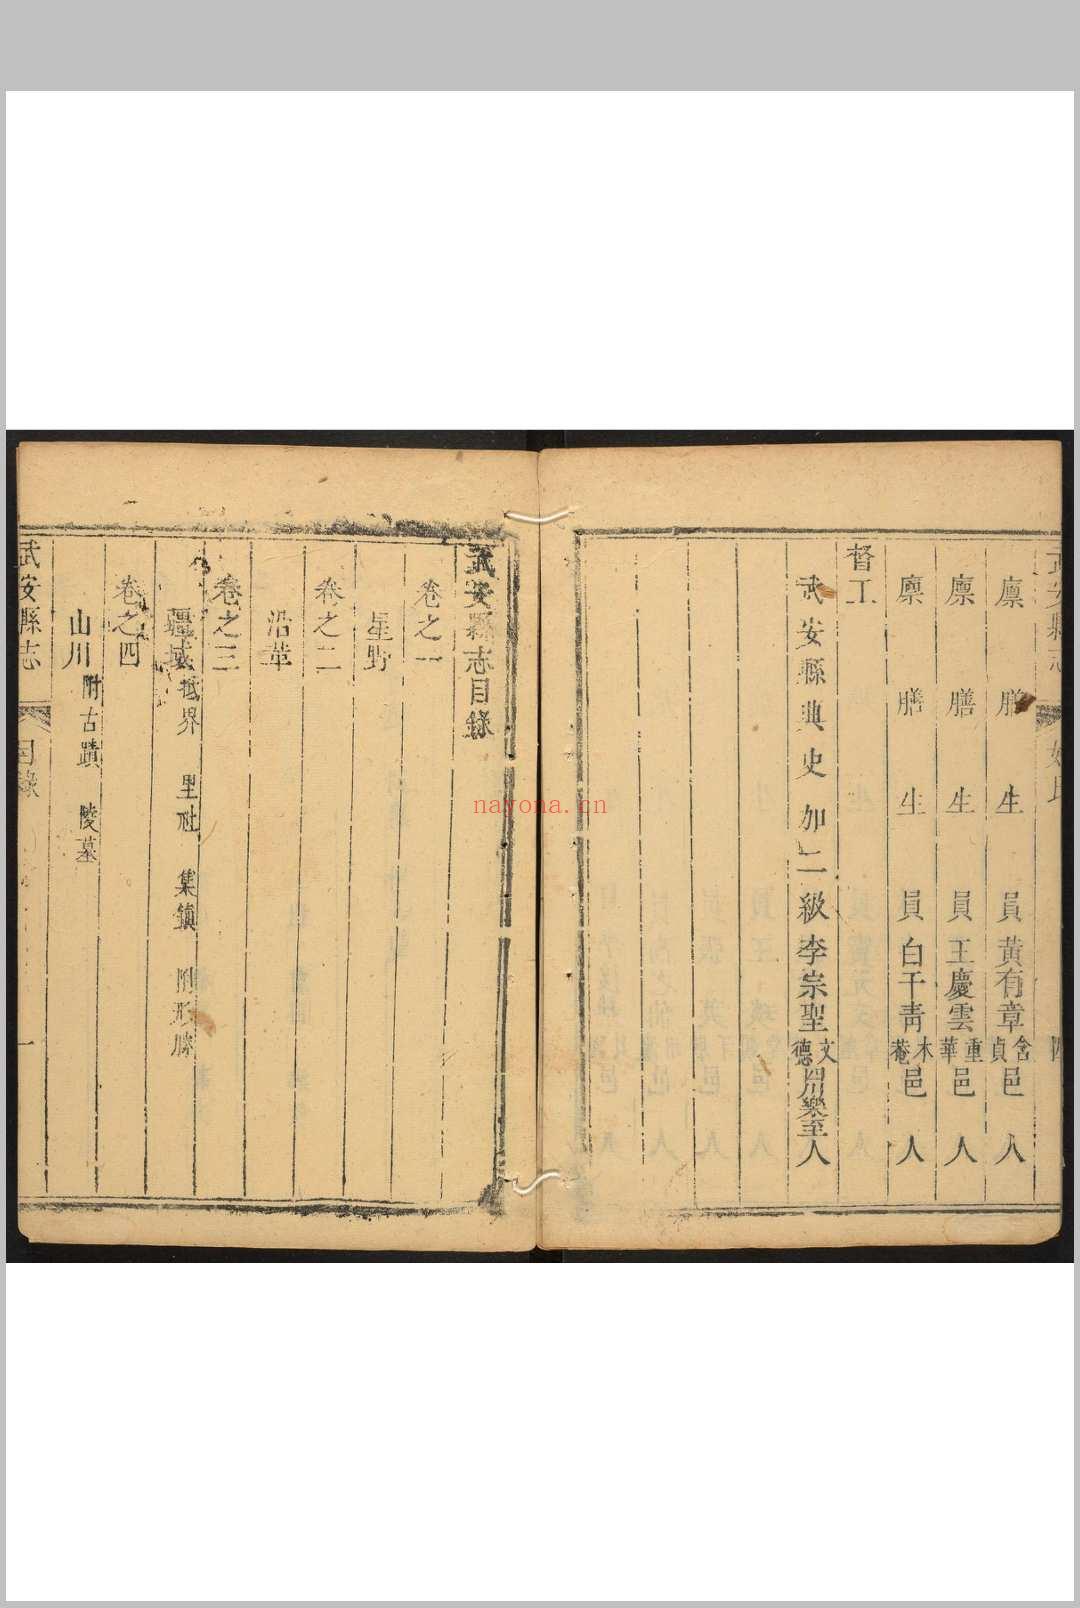 武安縣志
姓氏
四
廪膳生員黃有章含貞邑人
廪膳生員王慶雲重華邑人
廪膳生員白干靑木菴邑人
督工
武安縣典史加二級李宗聖文德四川樂至人
武安縣志目錄
卷之一
星野
卷之二
沿革
卷之三
疆域抵界 里社 集鎮 附形勝
卷之四
山川附古蹟 陵墓
武安縣志
目錄
一
nayona.cn